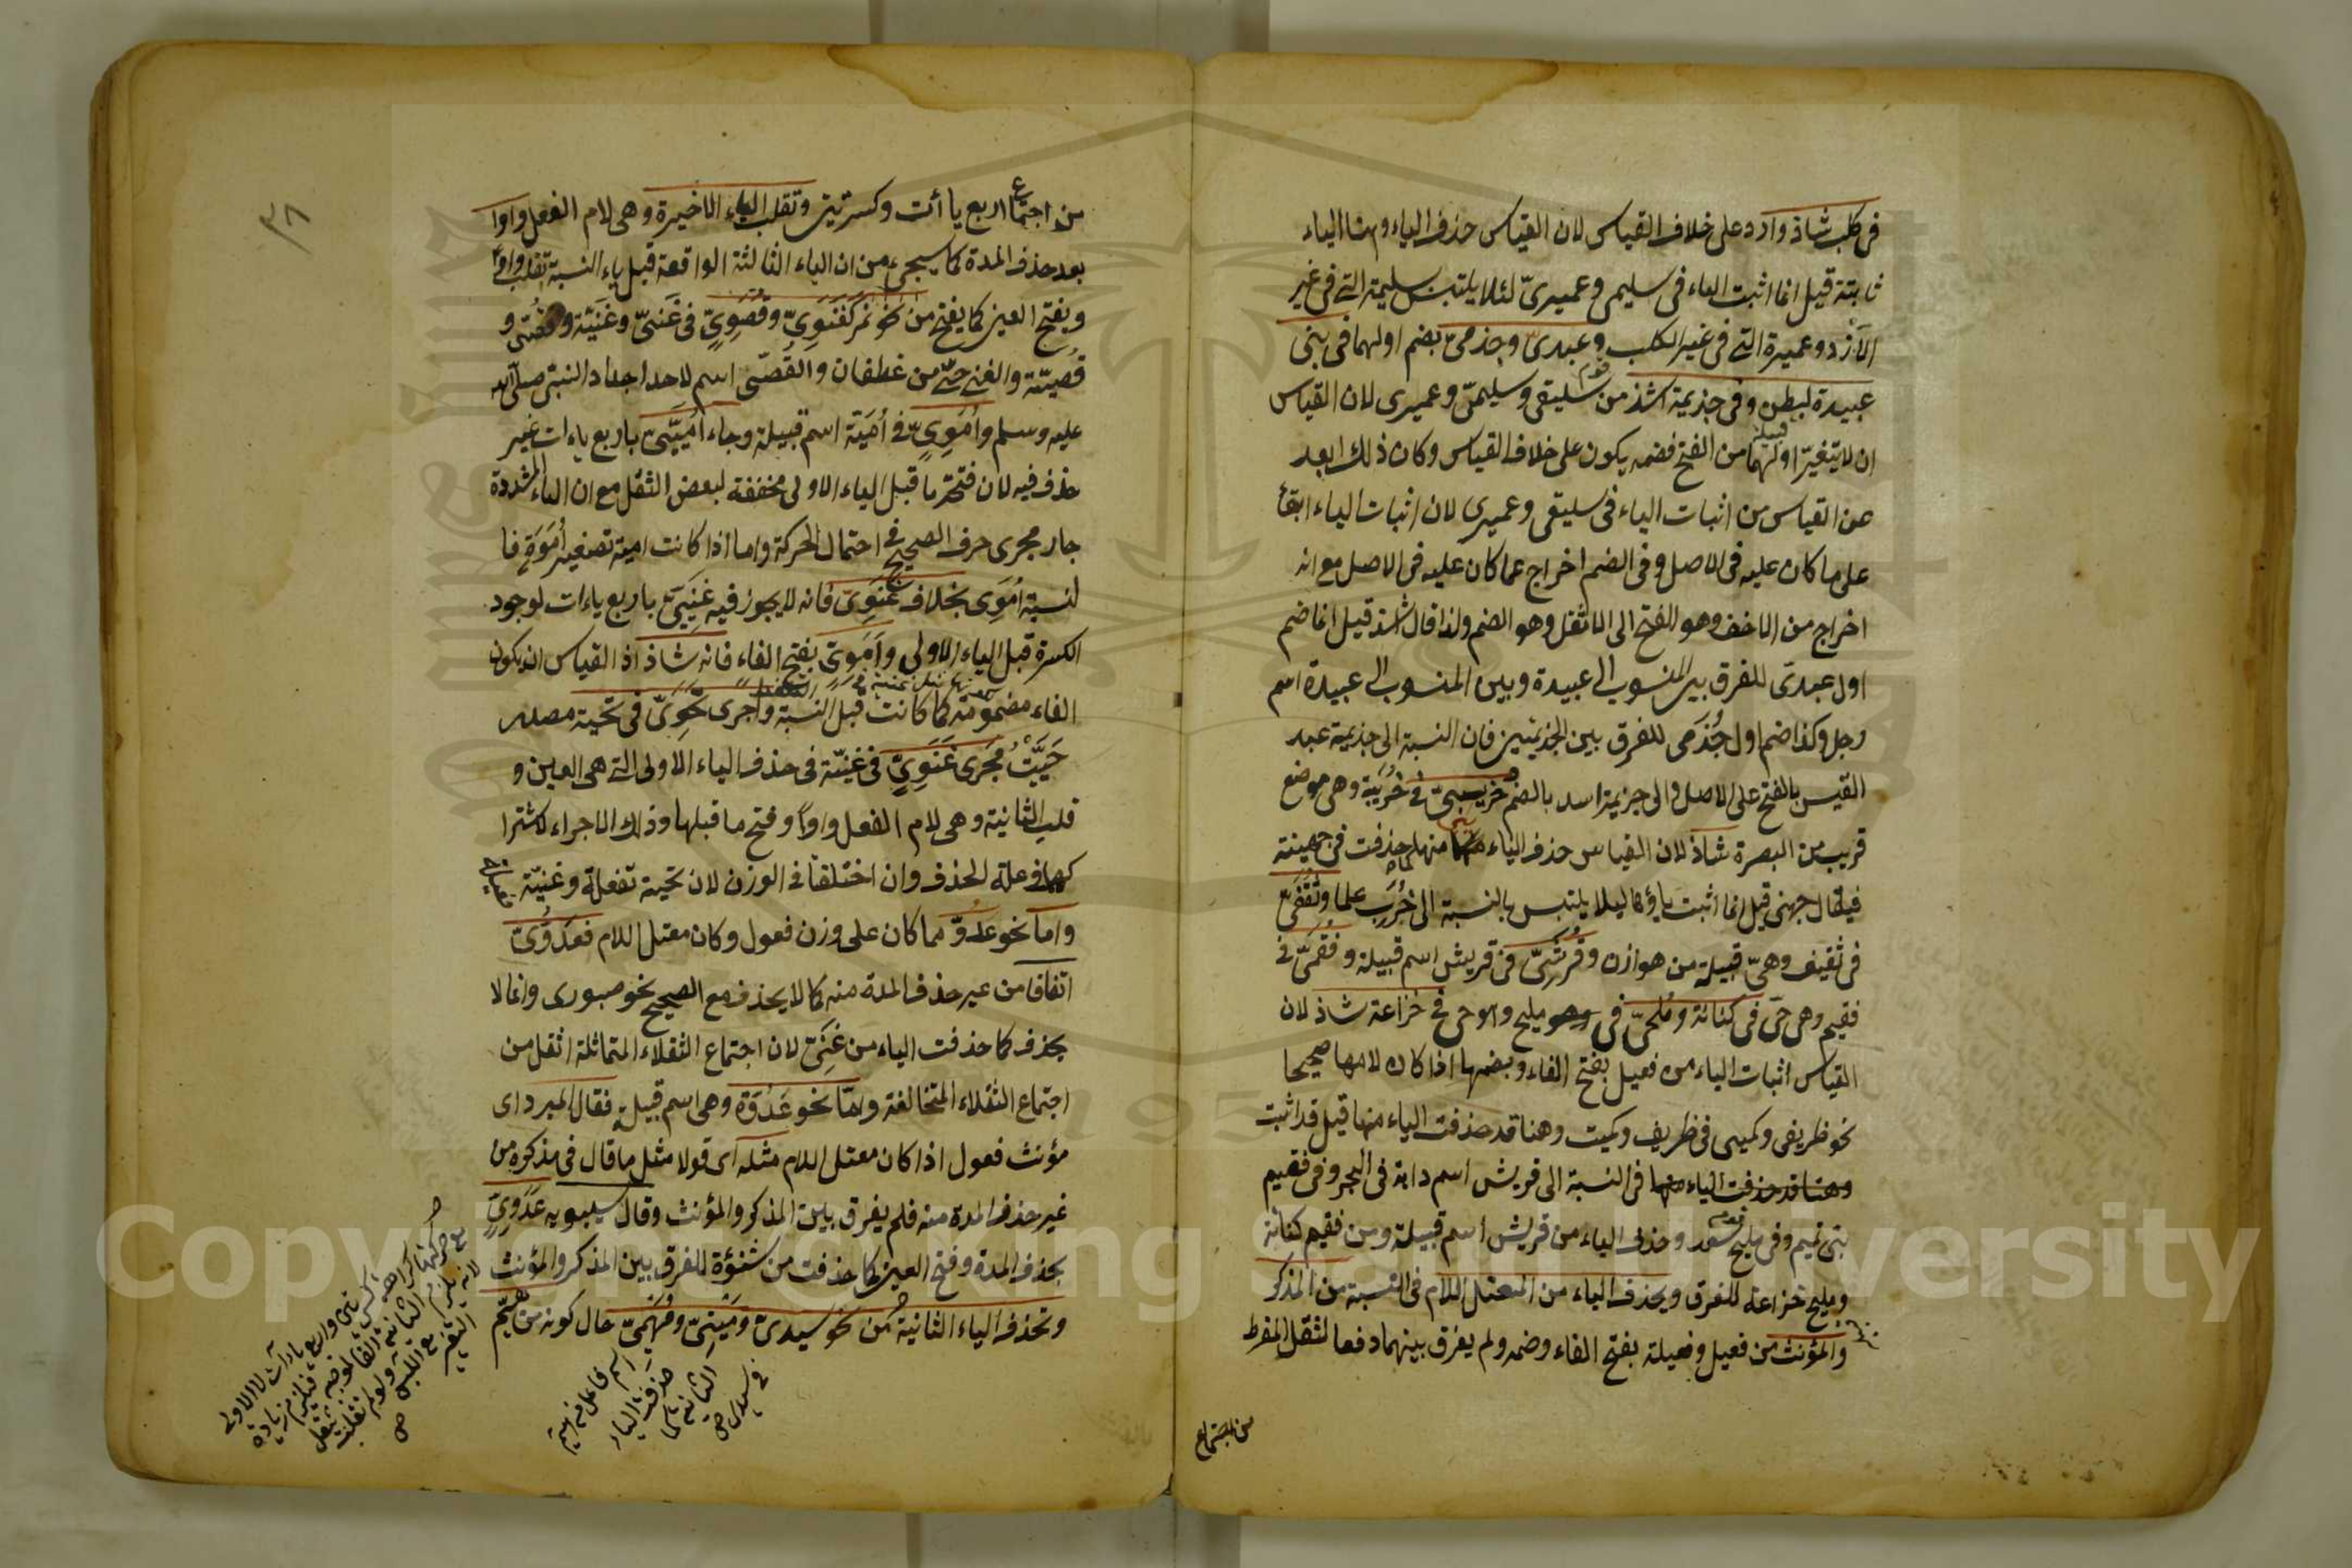 فى كلب شاذ وارد على خلاف القياس لان القياس حذف الياء وهنا الياء
ثابتة قيل انما اثبت الياء فى سليمى وعميرىّ لئلا يلتبس بسليمة التى فى غير
الأزد وعميرة التى فى غير الكلب وعبدىّ وجذمىّ بضم اولهما فى بنى
عبيدة لبطن وفى جذيمة اشذ من سليقى وسليمىّ وعميرى لان القياس
ان لا يتغيّر اولهما من الفتح فضمه يكون على خلاف القياس وكان ذلك ابعد
عن القياس من اثبات الياء فى سليقى وعميرى لان اثبات الياء ابقاء
على ما كان عليه فى الاصل وفى الضم اخراج عما كان عليه فى الاصل مع انه
اخراج من الاخف وهو الفتح الى الاثقل وهو الضم ولذا قال اشذ قيل انما ضم
اول عبدىّ للفرق بين المنسوب الى عبيدة وبين المنسوب الى عبيدة اسم
رجل وكذا ضم اول جُذَمى للفرق بين الجذيمتين فان النسبة الى جذيمة عبد
القيس بالفتح على الاصل والى جزيمة اسد بالضم خريبىّ فى خُرَيبة وهى موضع
قريب من البصرة شاذ لان القياس حذف الياء منها كما حذفت فى جهينة
فيقال جهنى قيل انما اثبت ياؤها ليلا يلتبس بالنسبة الى خُرَب علما وثَقَفىّ
فى ثقيف وهىّ قبيلة من هوازن وقُرَشىّ فى قريش اسم قبيلة وفُقَمىّ فى
فقيم وهى حىّ فى كنانة ومُلَحىّ فى وهو مليح وهو حى فى خزاعة شاذ لان
القياس اثبات الياء من فعيل بفتح الفاء وبضمها اذا كان لامها صحيحا
نحو ظريفى وكميتى فى ظريف وكميت وهنا قد حذفت الياء منها قيل قد اثبت
وهنا قد حذفت الياء منها فى النسبة الى قريش اسم دابة فى البحر وفى فقيم
بنى تميم وفى مليح سعد وحذف الياء من قريش اسم قبيلة ومن فقيم كنانة
ومليح خزاعة للفرق ويحذف الياء من المعتل اللام فى النسبة من المذكر
والمؤنث من فعيل وفعيلة بفتح الفاء وضمه ولم يفرق بينهما دفعا لثقل المفرط
من اجتماع
٣٨
من اجتماع اربع ياأت وكسرتين وتقلب الياء الاخيرة وهى لام الفعل واوا
بعد حذف المدة كما سيجىء من ان الياء الثالثة الواقعة قبل ياء النسبة تقلب واوًا
وبفتح العين كما يفتح من نحو نمر كغَنَوِىّ وقُصَوِىّ فى غَنىّ وغَنيّة وقُصَىّ و
قُصَيّة والغنى حىّ من غطفان والقُصَىّ اسم لاحد اجداد النبى صلى الله
عليه وسلم وأُمَوِىّ فى أُمَيّة اسم قبيلة وجاء أُمَيِّىّ باربع ياءات غير
حذف فيه لان فتحة ما قبل الياء الاولى مخففة لبعض الثقل مع ان الياء المشددة
جار مجرى حرف الصحيح فى احتمال الحركة واما اذا كانت امية تصغير أَمَوَة فا
لنسبة أُمَوِى بخلاف غَنَوِىّ فانه لا يجوز فيه غَنِيِّىّ باربع ياءات لوجود
الكسرة قبل الياء الاولى وأَمَوِىّ بفتح الفاء فانه شاذ اذ القياس ان يكون
الفاء مضمومة كما كانت قبل النسبة واجرى تَحَوِىّ فى تحية مصدر
حَيَّيْتُ مَجرى غَنَوِىّ فى غَنيّة فى حذف الياء الاولى التى هى العين و
قلب الثانية وهى لام الفعل واوًا وفتح ما قبلها وذلك الاجراء لاشترا
كهما فى علة الحذف وان اختلفا فى الوزن لان تحية تفعلة وغنيّة
واما نحو عدُوّ مما كان على وزن فعول وكان معتل اللام فعَدُوِّىّ
اتفاقا من غير حذف المدة منه كما لا يحذف مع الصحيح نحو صبورى وانما لا
يحذف كما حذفت الياء من غَنِىّ لان اجتماع الثقلاء المتماثلة اثقل من
اجتماع الثقلاء المتخالفة وامّا نحو عَدُوّة وهى اسم قبيلة فقال المبرد اى
مؤنث فعول اذا كان معتل اللام مثله اى قولا مثل ما قال فى مذكره من
غير حذف المدة منه فلم يفرق بين المذكر والمؤنث وقال سيبويه عَدَوِىّ
بحذف المدة وفتح العين كما حذفت من شنؤة للفرق بين المذكر والمؤنث
وتحذف الياء الثانية من نحو سيدىّ ومَيْتىّ ومُهَيْمىّ حال كونه من هَيّم
اسم فاعل من هيّم
حذفت الياء
الثانية كما
فى سيدى ص
Copyright © King Saud University